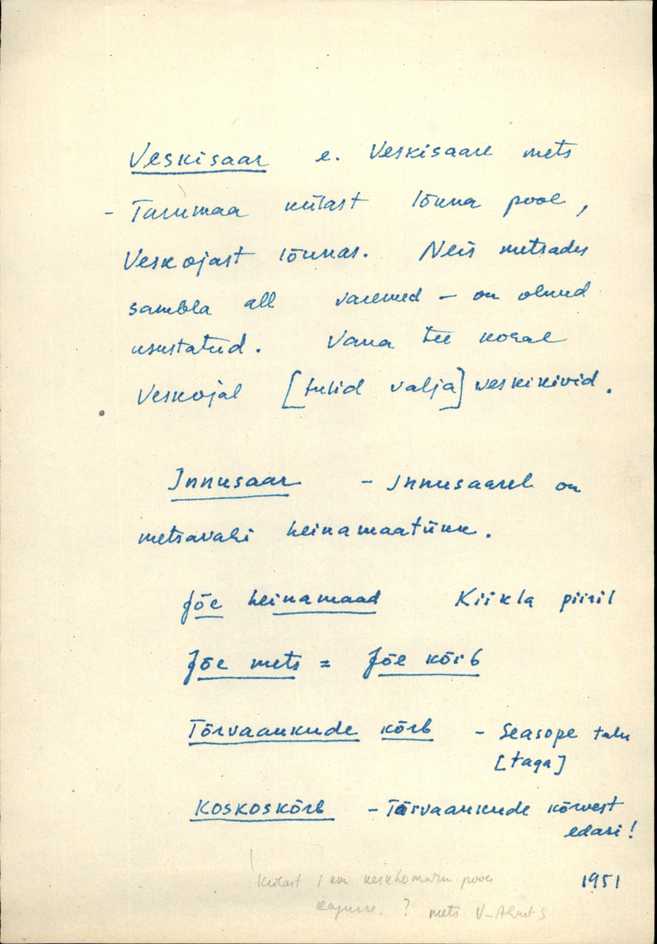 Veskisaar e. Veskisaare mets
- Tarumaa külast lõuna pool,
Veskojast lõunas. Neis metsades
sambla all varemed – on olnud
asustatud. Vana tee kõrval
Veskojal [tulid valja] veskikivid.
Innusaar - Innusaarel on
metsavahi heinamaatükk.
Jõe heinamaad Kiikla piiril
Jõe mets = Jõe kõrb
Tõrvaaukude kõrb - Seasope talu
[taga]
Koskoskõrb - Tõrvaaukude kõrvest
edasi!
1951
külast 1 km keskhommiku pool
? mets